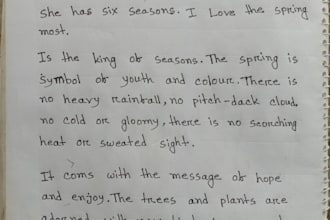 she has six seasons. I Love the spring
most.
Is the king of seasons. The spring is
symbol of youth and colour. There is
no heavy rainfall, no pitch-dack cloud,
no cold or gloomy, there is no scorching
heat or sweated sight.
It coms with the message of hope
and enjoy. The trees and plants are